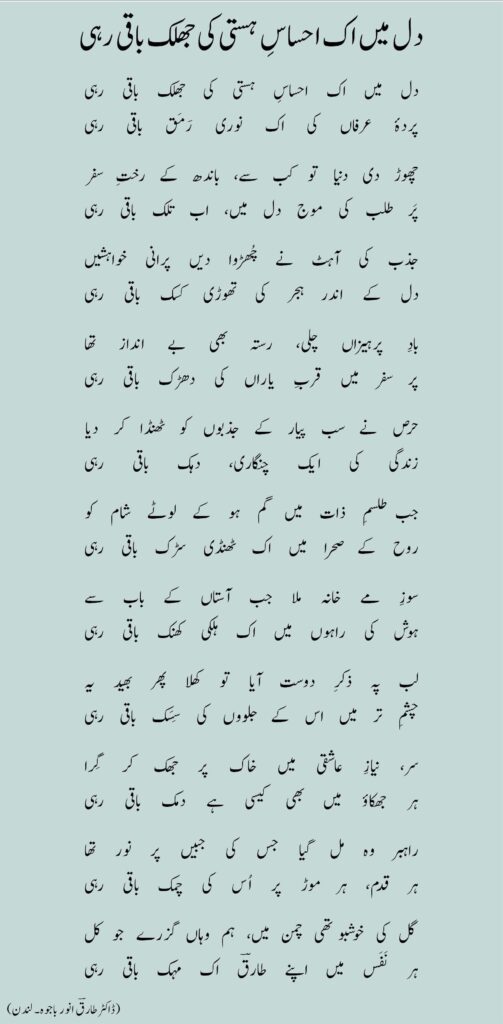 دل میں اک احساسِ ہستی کی جھلک باقی رہی
دل میں اک احساسِ ہستی کی جھلک باقی رہی
پردۂ عرفاں کی اک نوری رَمَق باقی رہی
چھوڑ دی دنیا تو کب سے، باندھ کے رختِ سفر
پَر طلب کی موج دل میں، اب تلک باقی رہی
جذب کی آہٹ نے چُھڑوا دیں پرانی خواہشیں
دل کے اندر ہجر کی تھوڑی کسک باقی رہی
بادِ پرہیزاں چلی، رستہ بھی بے انداز تھا
پر سفر میں قربِ یاراں کی دھڑک باقی رہی
حرص نے سب پیار کے جذبوں کو ٹھنڈا کر دیا
زندگی کی ایک چنگاری، دہک باقی رہی
جب طلسمِ ذات میں گم ہو کے لوٹے شام کو
روح کے صحرا میں اک ٹھنڈی سڑک باقی رہی
سوزِ مے خانہ ملا جب آستاں کے باب سے
ہوش کی راہوں میں اک ہلکی کھنک باقی رہی
لب پہ ذکرِ دوست آیا تو کھلا پھر بھید یہ
چشمِ تر میں اس کے جلووں کی سِنَک باقی رہی
سر، نیازِ عاشقی میں خاک پر جھک کر گِرا
ہر جھکاؤ میں بھی کیسی ہے دمک باقی رہی
راہبر وہ مل گیا جس کی جبیں پر نور تھا
ہر قدم، ہر موڑ پر اُس کی چمک باقی رہی
گل کی خوشبو تھی چمن میں، ہم وہاں گزرے جو کل
ہر نَفَس میں اپنے طارقؔ اک مہک باقی رہی
(ڈاکٹر طارقؔ انور باجوہ۔ لندن)